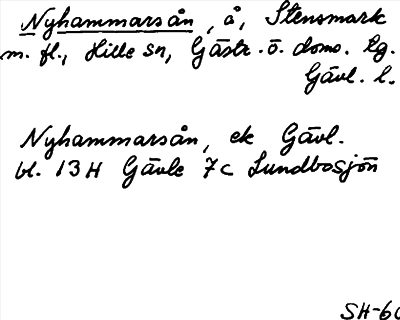 Nyhammarsån, å, Stensmark
m. fl., Hille sn, Gästr. ö. doms. lg.
Gävl. l.
Nyhammarsån, ek Gävl.
bl. 13 H Gävle 7c Lundbosjön
SH-60